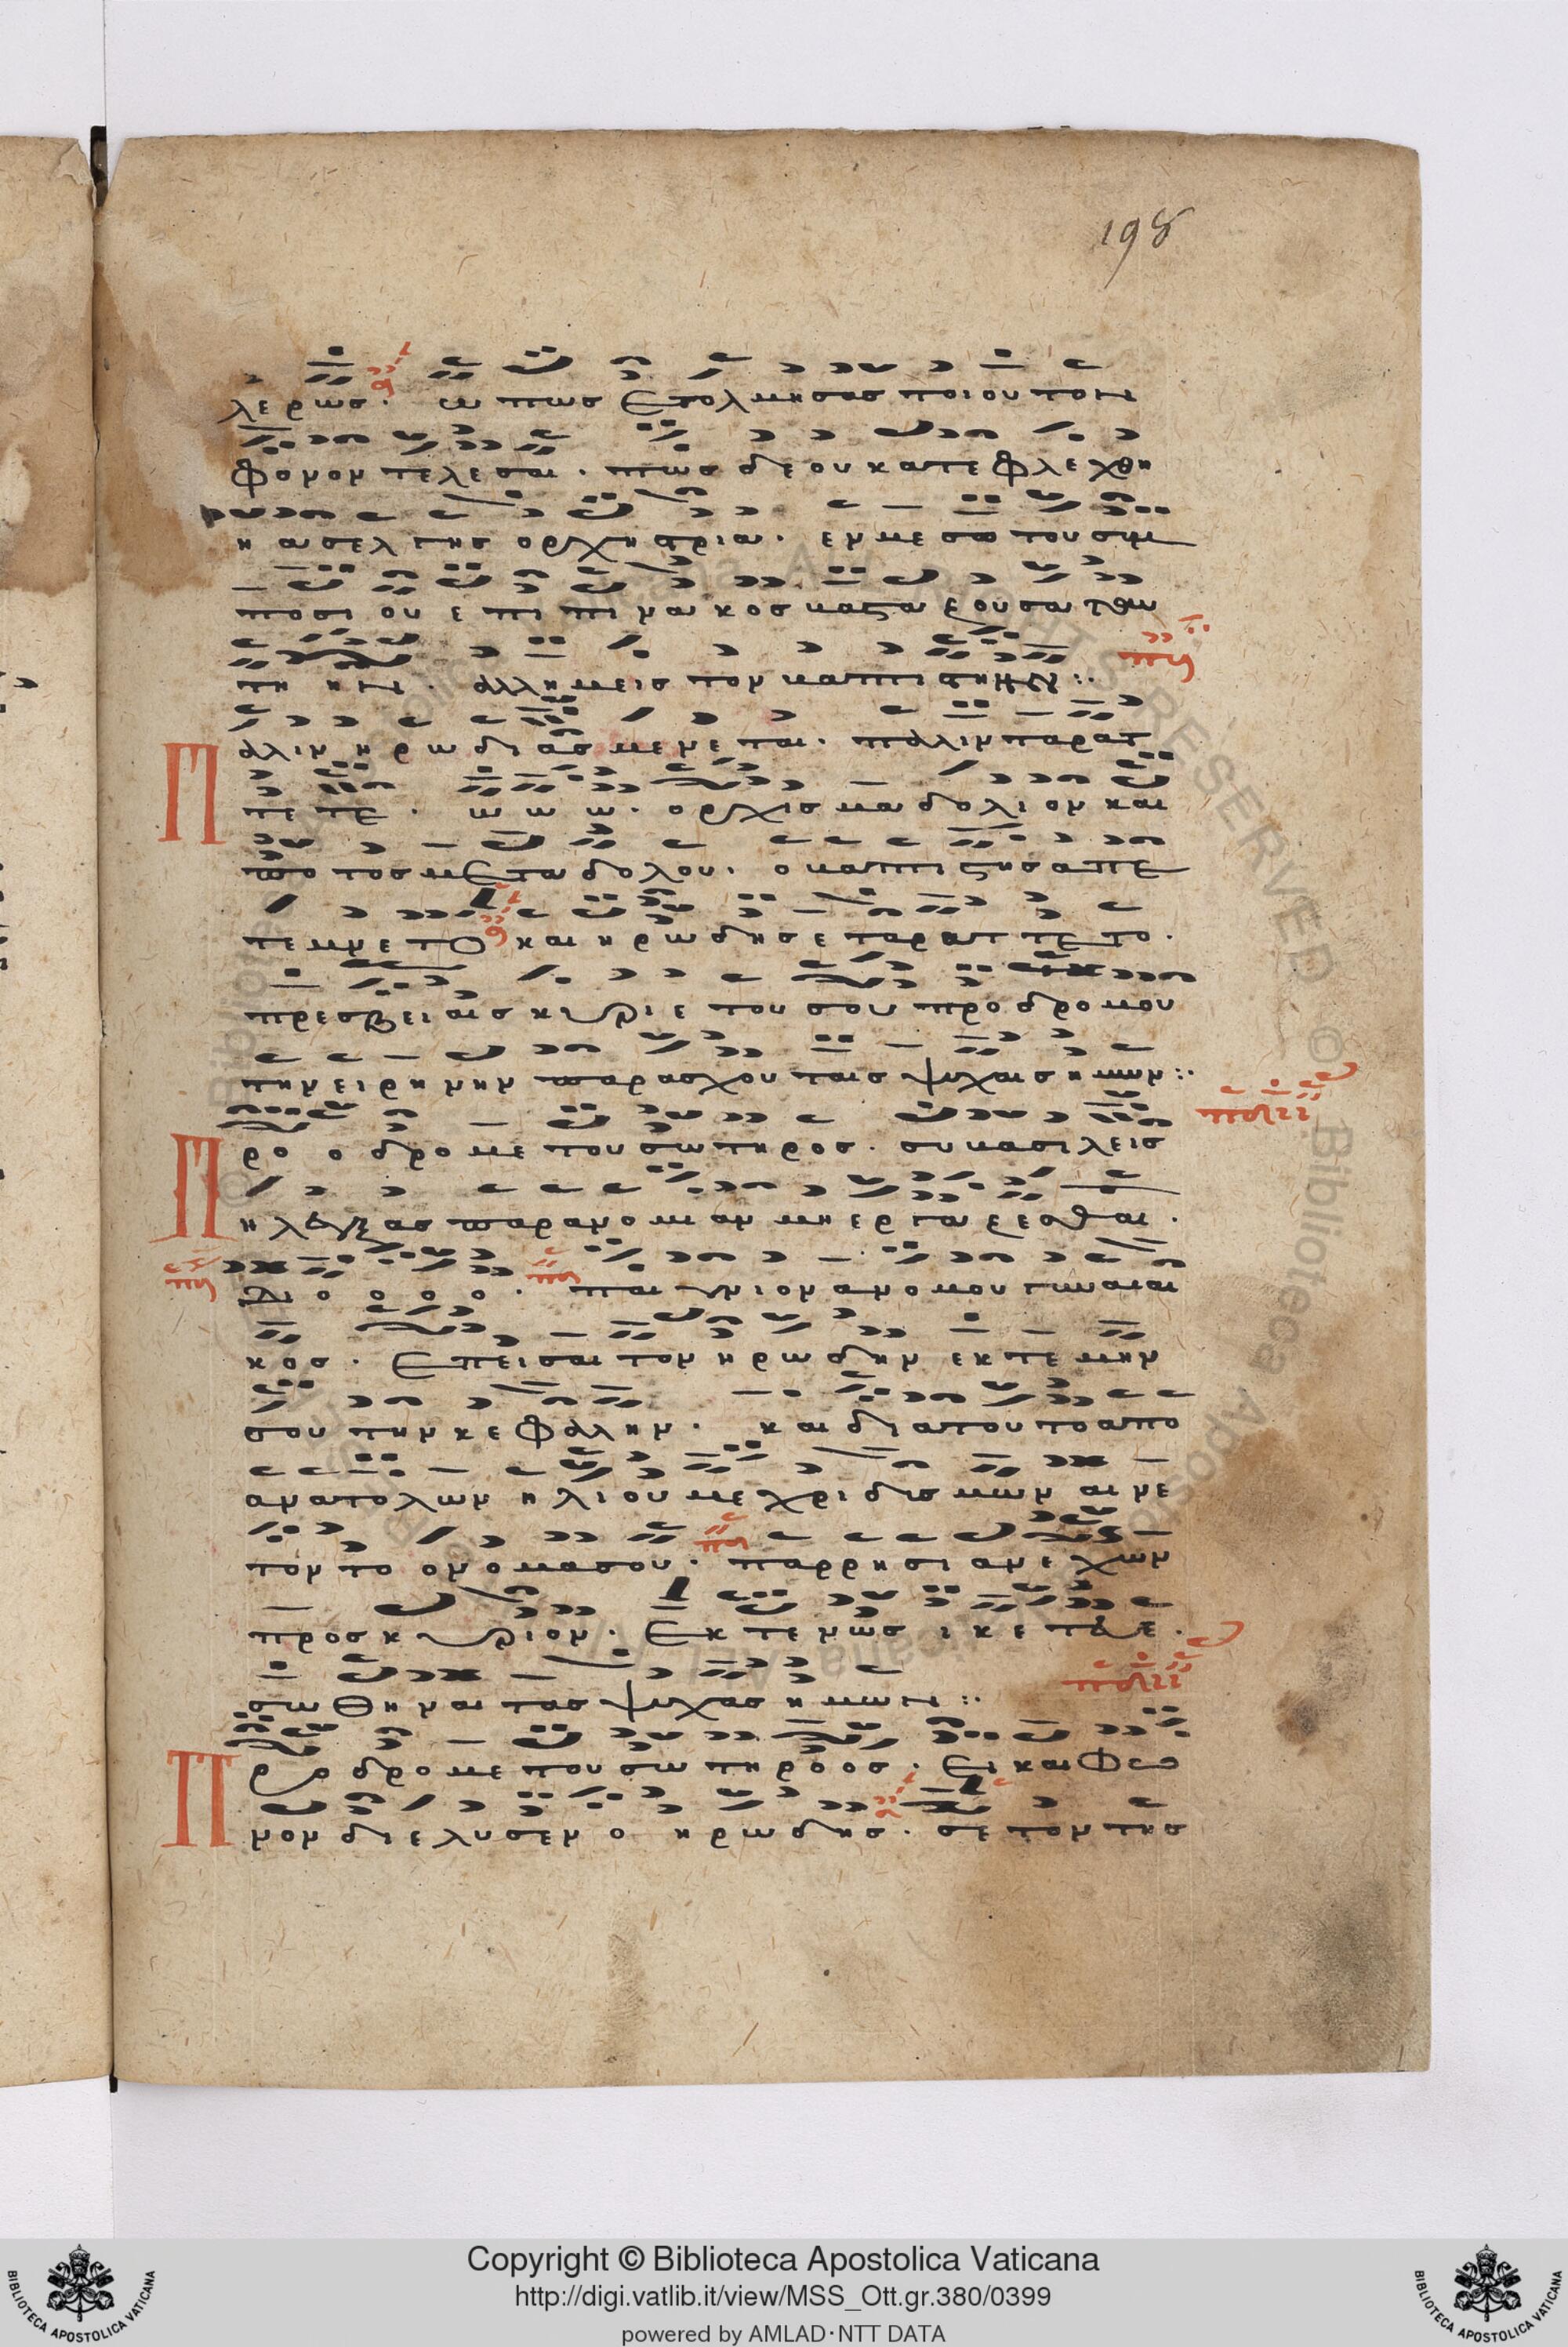 198
λερωσ · ω πωσ ετολμησασ τοιουτον
φονον τελεσαι · πωσ δε ου κατεφλεχθη
η ασελ της ορχηστρια · εν μεσω του συμ
ποσιου ε πι πι να κοσ βαστα ζουσα την
αλλ ημεισ τον βαπτιστην ⁘
Π αλιν ηρωδιασ μενεται · παλιν ταρατ
τε τε · ω ω ω · ορχισμα δολιον και
ποτοσ μετα δολου · ο βαπτιστησ απε
τεμνετο και ηρωδησ εταραττετο ·
πρεσβειαισ κυριε του σου προδρομου
την ειρηνην παρασχου ταισ ψυχαισ ημων ⁘
Π ρο ο δρομε του σωτηροσ · συ βασιλεισ
ηλεγξασ παρανομιαν μη εργαζεσθαι ·
ο ο ο ο · παιγνιον ανομου γυναικαι
κοσ · επεισαι τον ηρωδην εκτεμην
σου την κεφαλην · και δια τουτο απο
ανατολων ηλιου μεχρι δισμων αινε
τον το ονομα σου · παρρησιαν εχων
προσ κυριον · εκτενωσ ικετευε ·
σωθηναι τασ ψυχασ ημων ⁘
Π ρο δρομε του σωτηροοσ · ει και φο
νον διελυσεν ο ηρωδησ · σε τον τησ
Copyright © Biblioteca Apostolica Vaticana
http://digi.vatlib.it/view/MSS_Ott.gr.380/0399
powered by AMLAD·NTT DATA
BIBLIOTECA APOSTOLICA VATICANA
BIBLIOTECA APOSTOLICA VATICANA